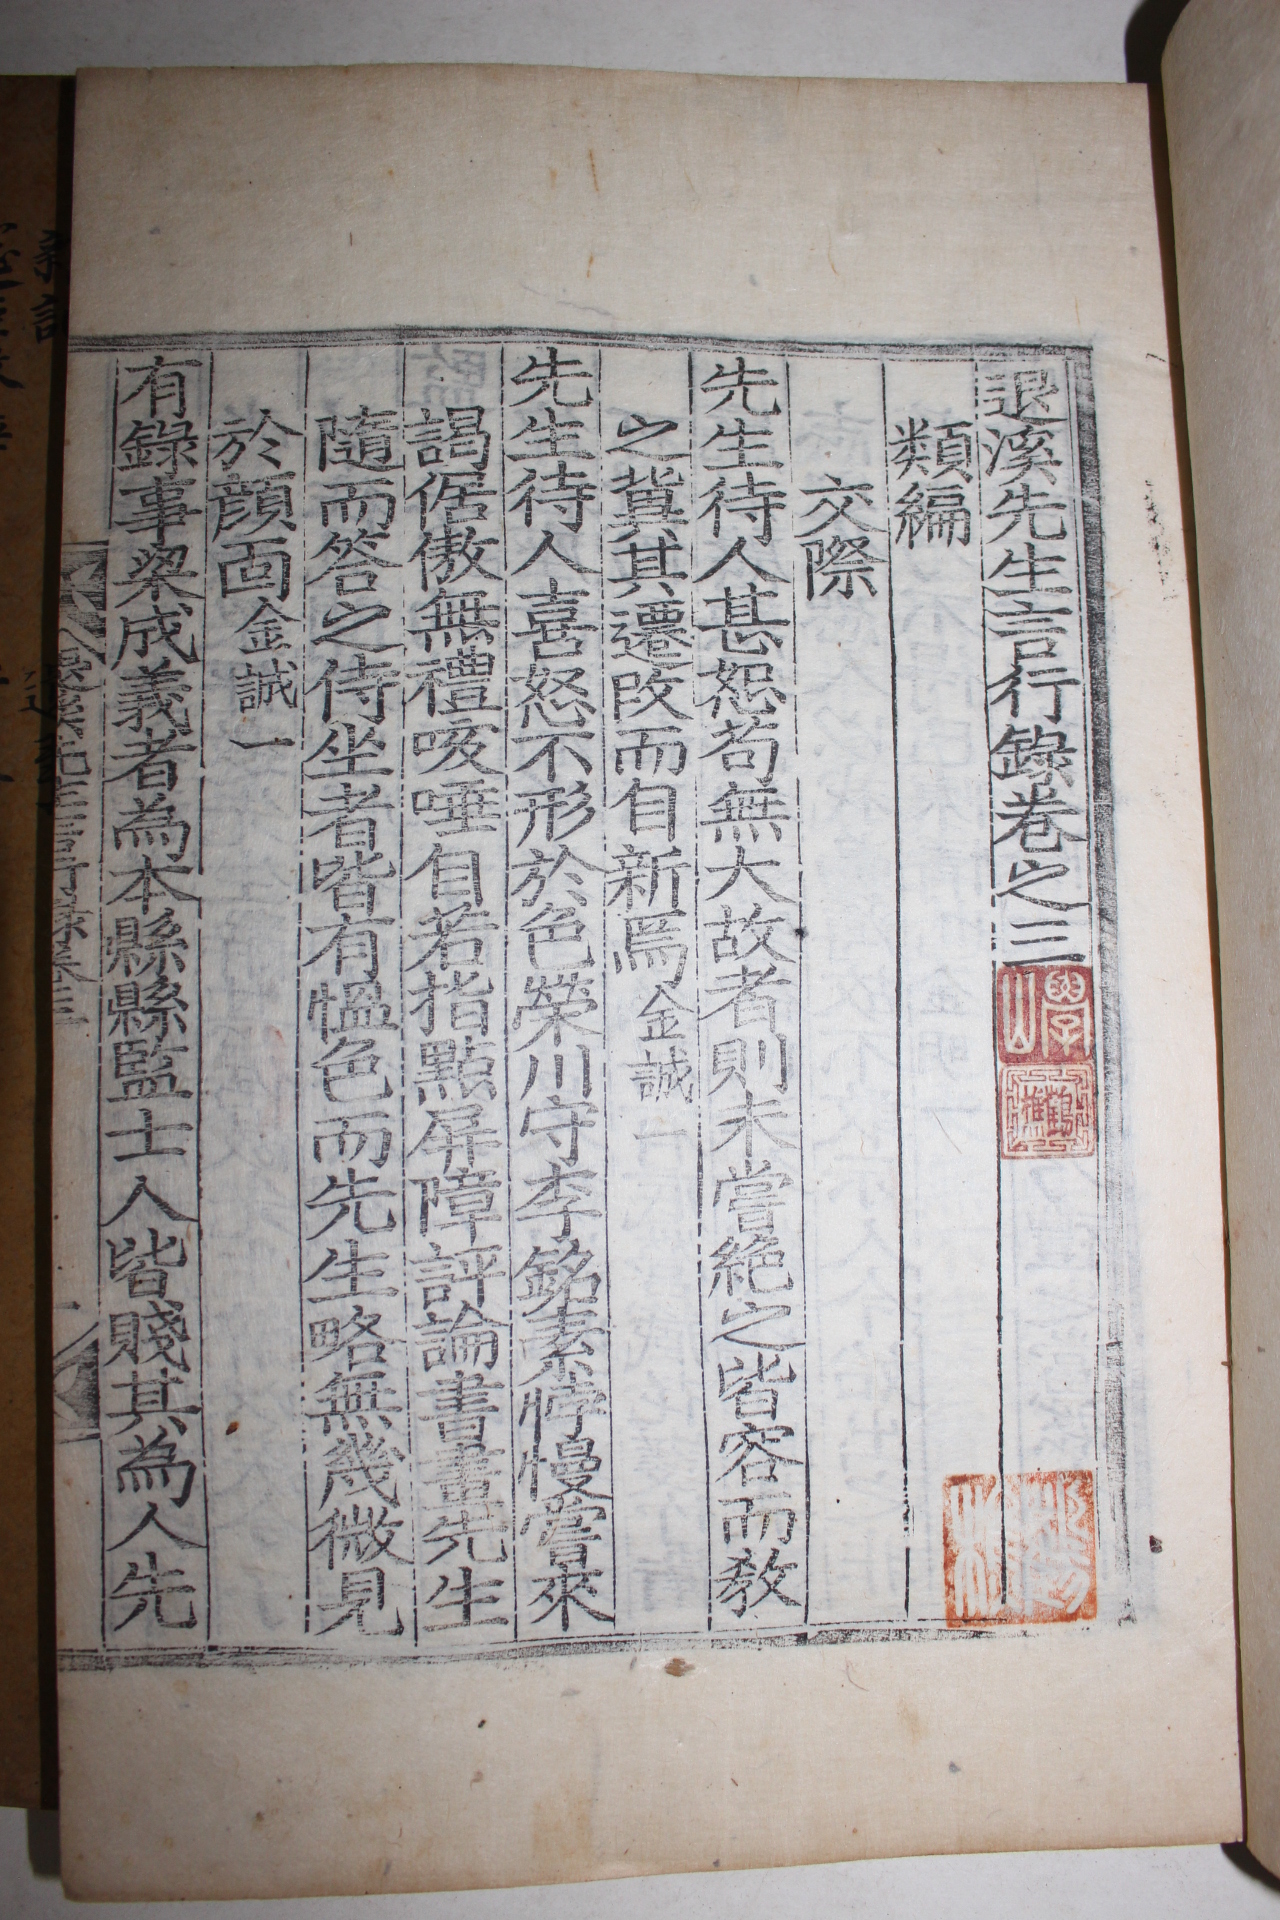 退溪先生言行錄卷之三
類編
交際
先生待人甚恕苟無大故者則未嘗絶之皆容而敎
之冀其遷改而自新焉金誠一
先生待人喜怒不形於色榮川守李銘素悖慢嘗來
謁倨傲無禮咳唾自若指點屛障評論書畫先生
隨而答之侍坐者皆有慍色而先生略無幾微見
於顔面金誠一
有錄事梁成義者為本縣縣監士人皆賤其為人先
退溪先生言行錄卷三